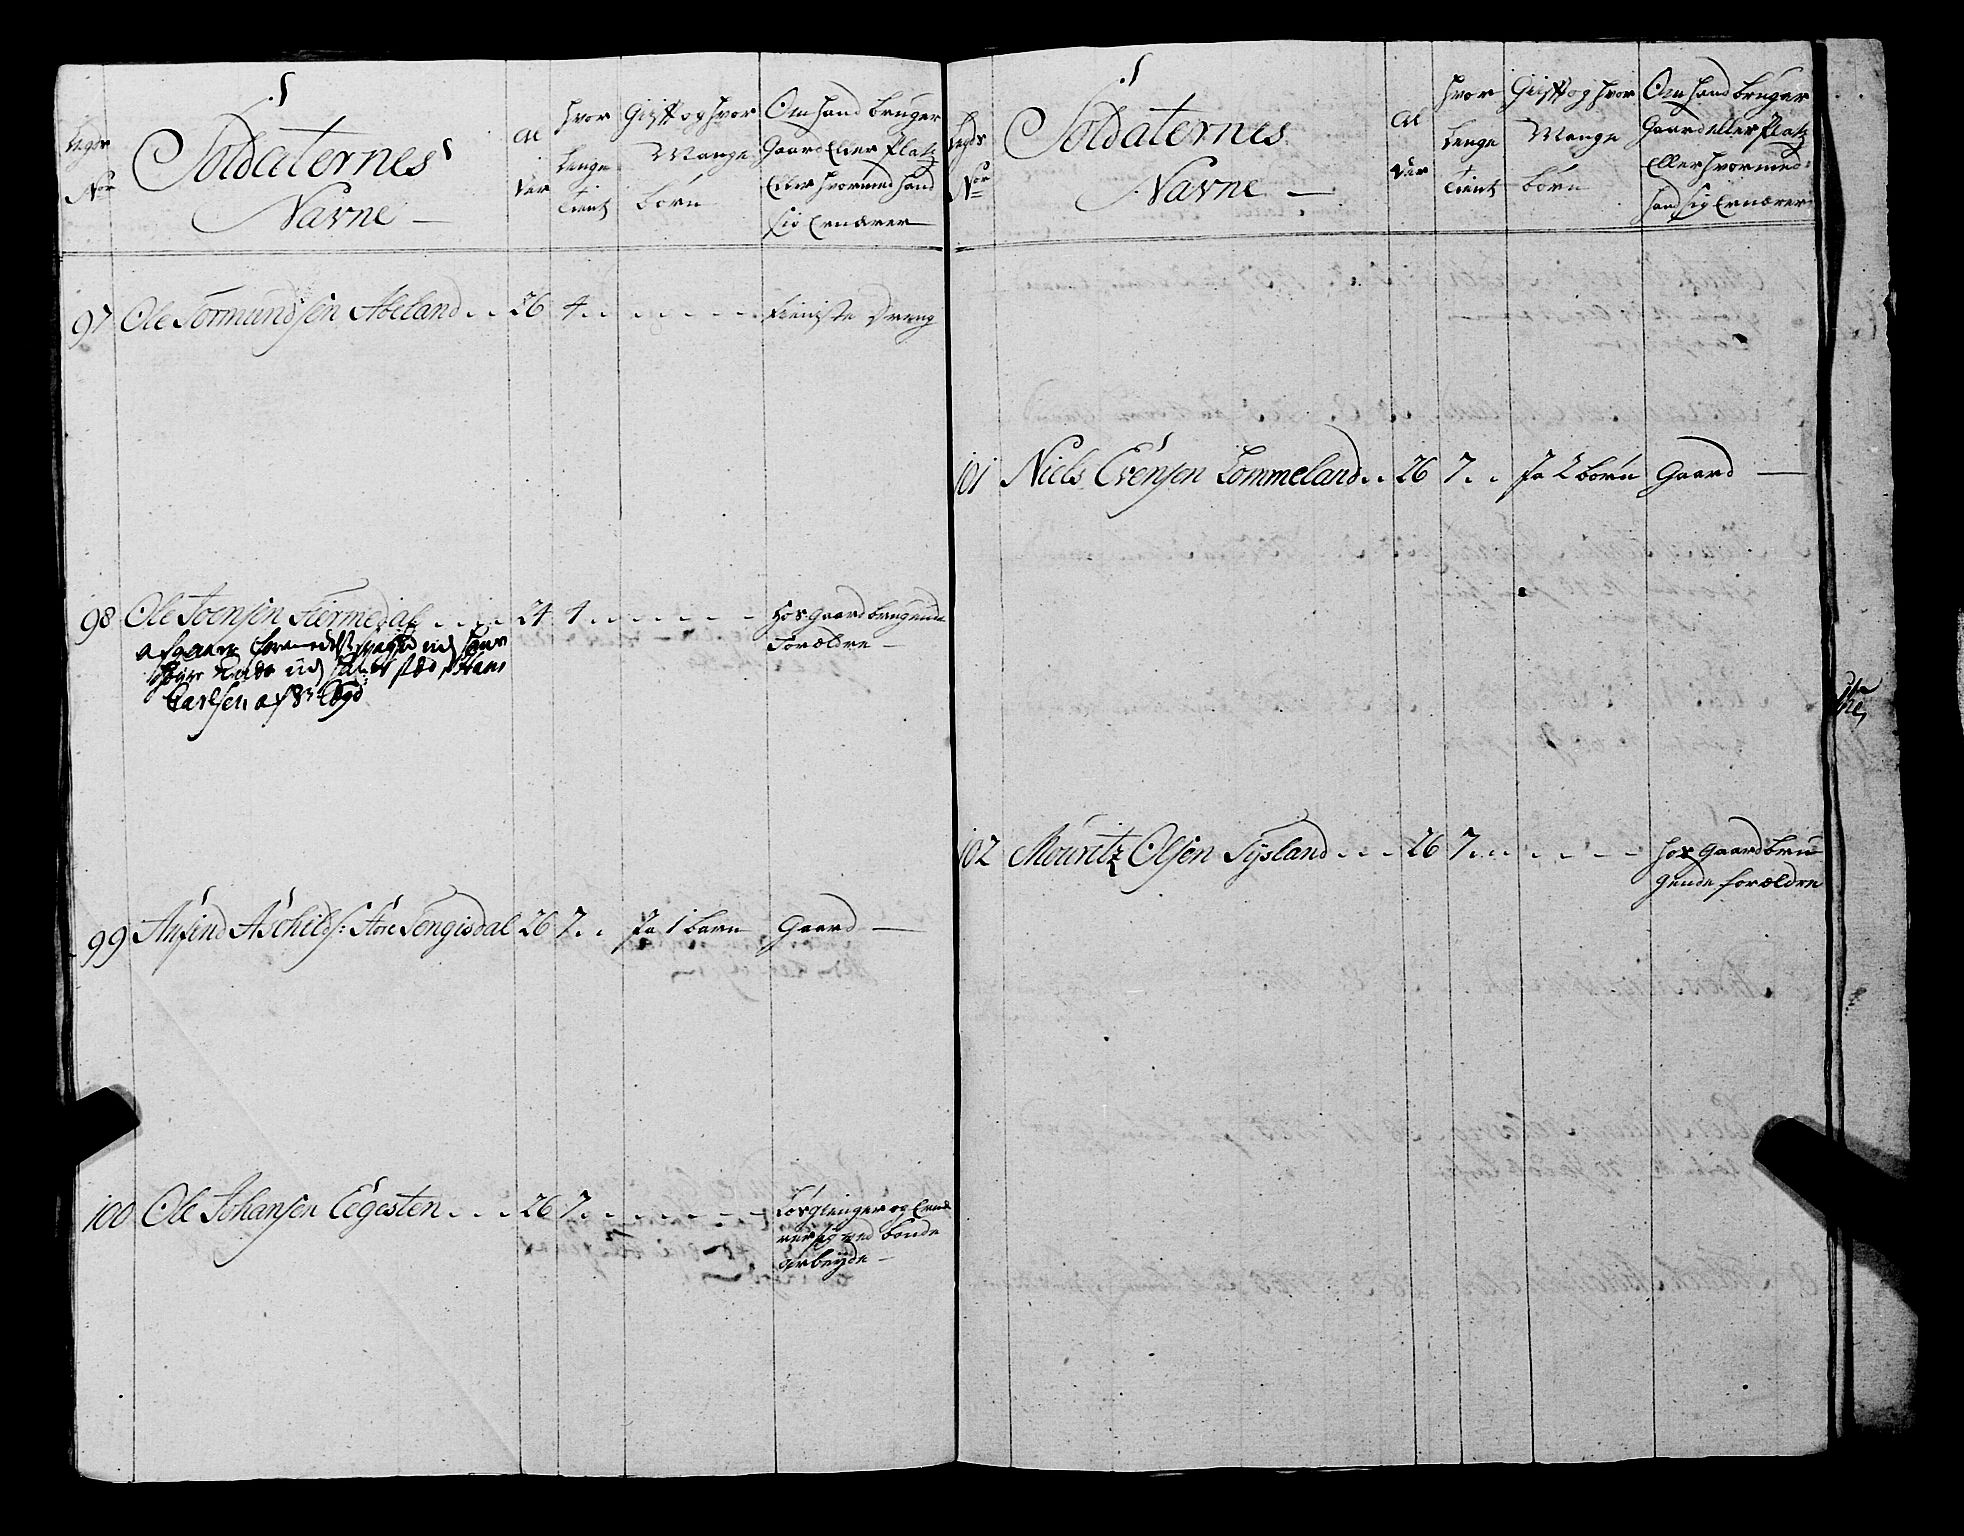 Legds
No
Soldaternes
Navne
Al
der
Hvor
Lenge
tient
Gift og hvor
Mange
børn
Om hand bruger
Gaard Eller Platz
Eller hvormed hand
sig Ernærer
97 Ole Tormundsen Abeland 26 4 Tieniste dreng
98 Ole Toensen Fiermedal 24 4 Hos Gaard brugende
Forældre
afgaaer formedelst
ud stæd Hans
Carlsen af 8de Lægd
99 Anfind Aschilds: Store Tengisdal 26 7 Ja 1 barn Gaard
100 Ole Johansen Eegesten 26 7 Løsgienger og Ernæ
rer sig ved bonde
arbeyde
Legds
No
Soldaternes
Navne
Al
der
Hvor
Lenge
tient
Gift og hvor
Mange
børn
Om hand bruger
Gaard eller Platz
Eller hvormed
hand sig Ernærer
101 Niels Evensen Lommeland 26 7 Ja 2 børn Gaard
102 Mouritz Olsen Sysland 26 7 Hos Gaard bru
gende forældre